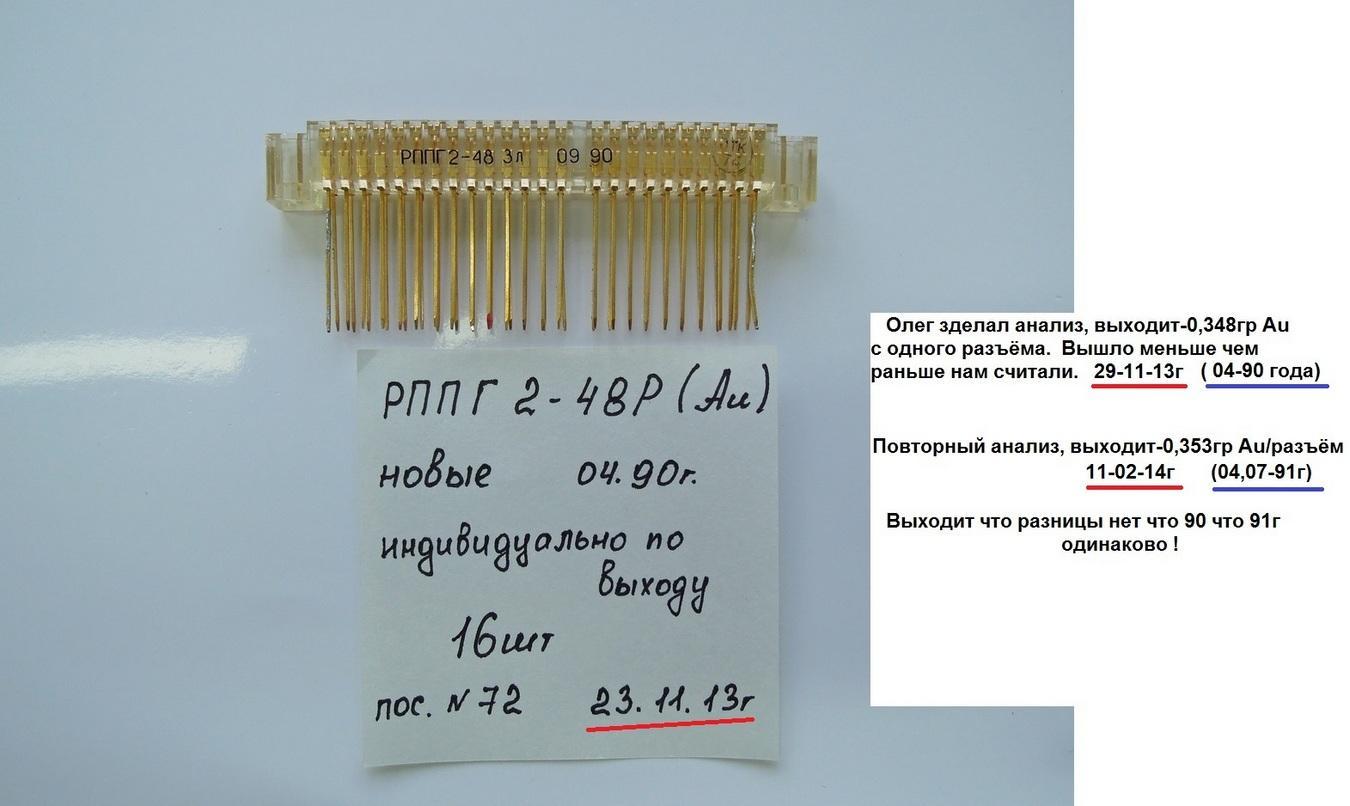 РППГ2-48 3л 09 90
РППГ 2-48Р (Au)
новые 04.90г.
индивидуально по
выходу
16шт
пос. N72 23.11.13г
Олег зделал анализ, выходит-0,348гр Au
с одного разъёма. Вышло меньше чем
раньше нам считали. 29-11-13г ( 04-90 года)
Повторный анализ, выходит-0,353гр Au/разъём
11-02-14г (04,07-91г)
Выходит что разницы нет что 90 что 91г
одинаково !